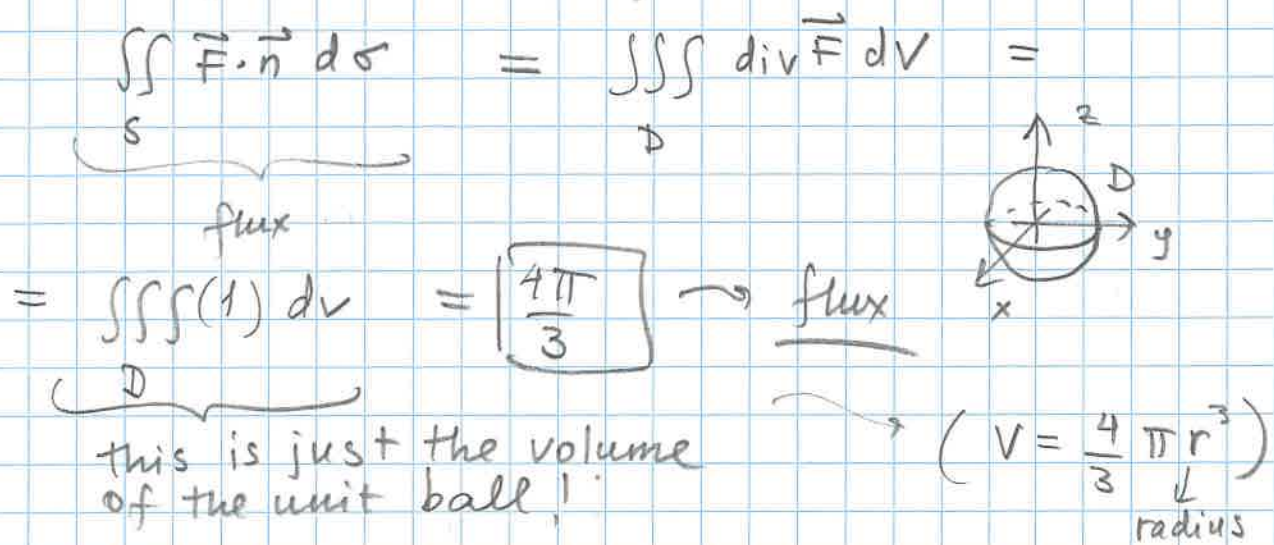 ∬ F⃗·n⃗ dσ = ∭ div F⃗ dV =
S D
flux
z
D
y
x
= ∭(1) dv = 4π/3 ⇝ flux
D
this is just the volume
of the unit ball!
(V = 4/3 π r³)
radius